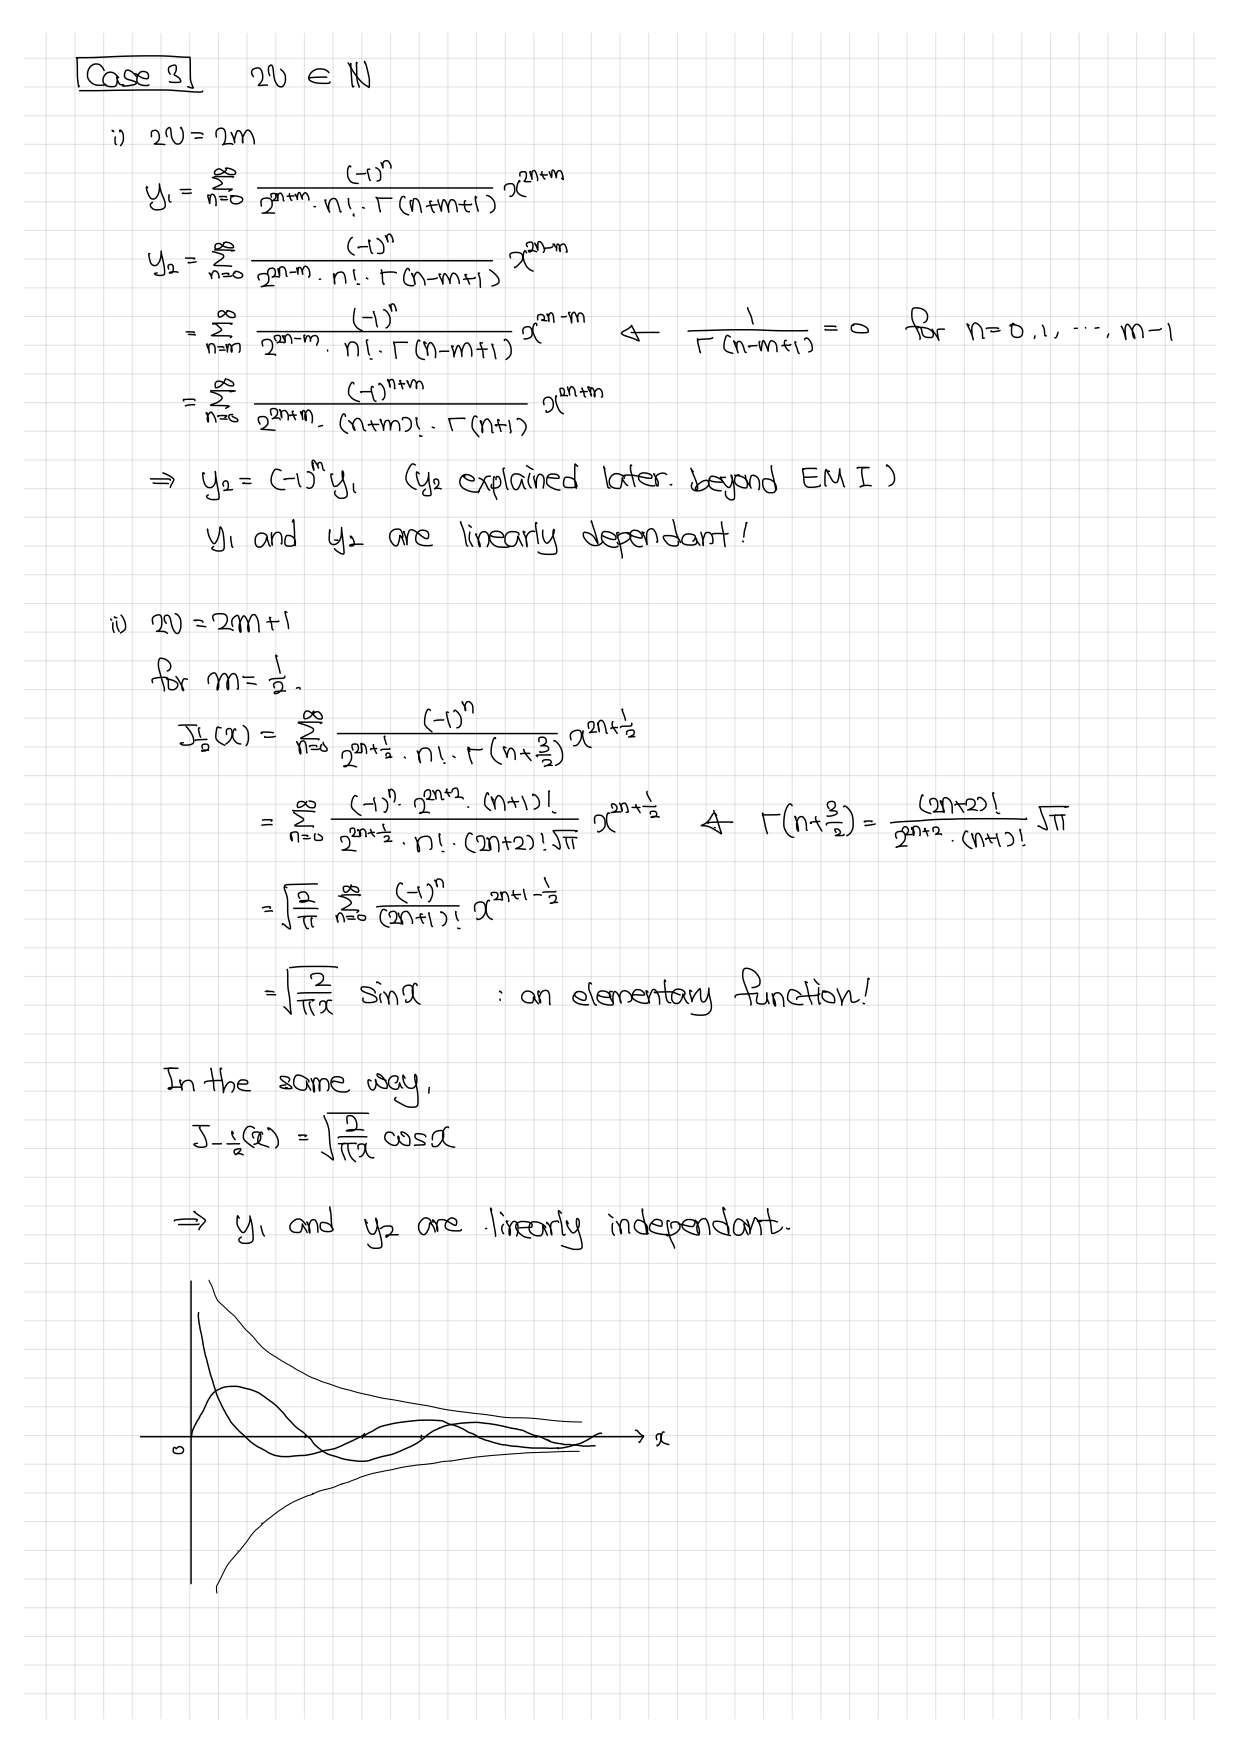 Case 3   2ν ∈ ℕ
i) 2ν = 2m
y₁ = ∑_{n=0}^{∞} (-1)^n / (2^{2n+m} · n! · Γ(n+m+1)) x^{2n+m}
y₂ = ∑_{n=0}^{∞} (-1)^n / (2^{2n-m} · n! · Γ(n-m+1)) x^{2n-m}
= ∑_{n=m}^{∞} (-1)^n / (2^{2n-m} · n! · Γ(n-m+1)) x^{2n-m} ← 1/Γ(n-m+1) = 0 for n=0,1,···,m-1
= ∑_{n=0}^{∞} (-1)^{n+m} / (2^{2n+m} · (n+m)! · Γ(n+1)) x^{2n+m}
⇒ y₂ = (-1)^m y₁ (y₂ explained later. beyond EM I)
y₁ and y₂ are linearly dependant!
ii) 2ν = 2m+1
for m = 1/2.
J_{1/2}(x) = ∑_{n=0}^{∞} (-1)^n / (2^{2n+1/2} · n! · Γ(n+3/2)) x^{2n+1/2}
= ∑_{n=0}^{∞} (-1)^n · 2^{2n+2} · (n+1)! / (2^{2n+1/2} · n! · (2n+2)! √π) x^{2n+1/2} ← Γ(n+3/2) = (2n+2)! / (2^{2n+2} · (n+1)!) √π
= √(2/π) ∑_{n=0}^{∞} (-1)^n / (2n+1)! x^{2n+1-1/2}
= √(2/πx) sinx : an elementary function!
In the same way,
J_{-1/2}(x) = √(2/πx) cosx
⇒ y₁ and y₂ are linearly independant.
0
x